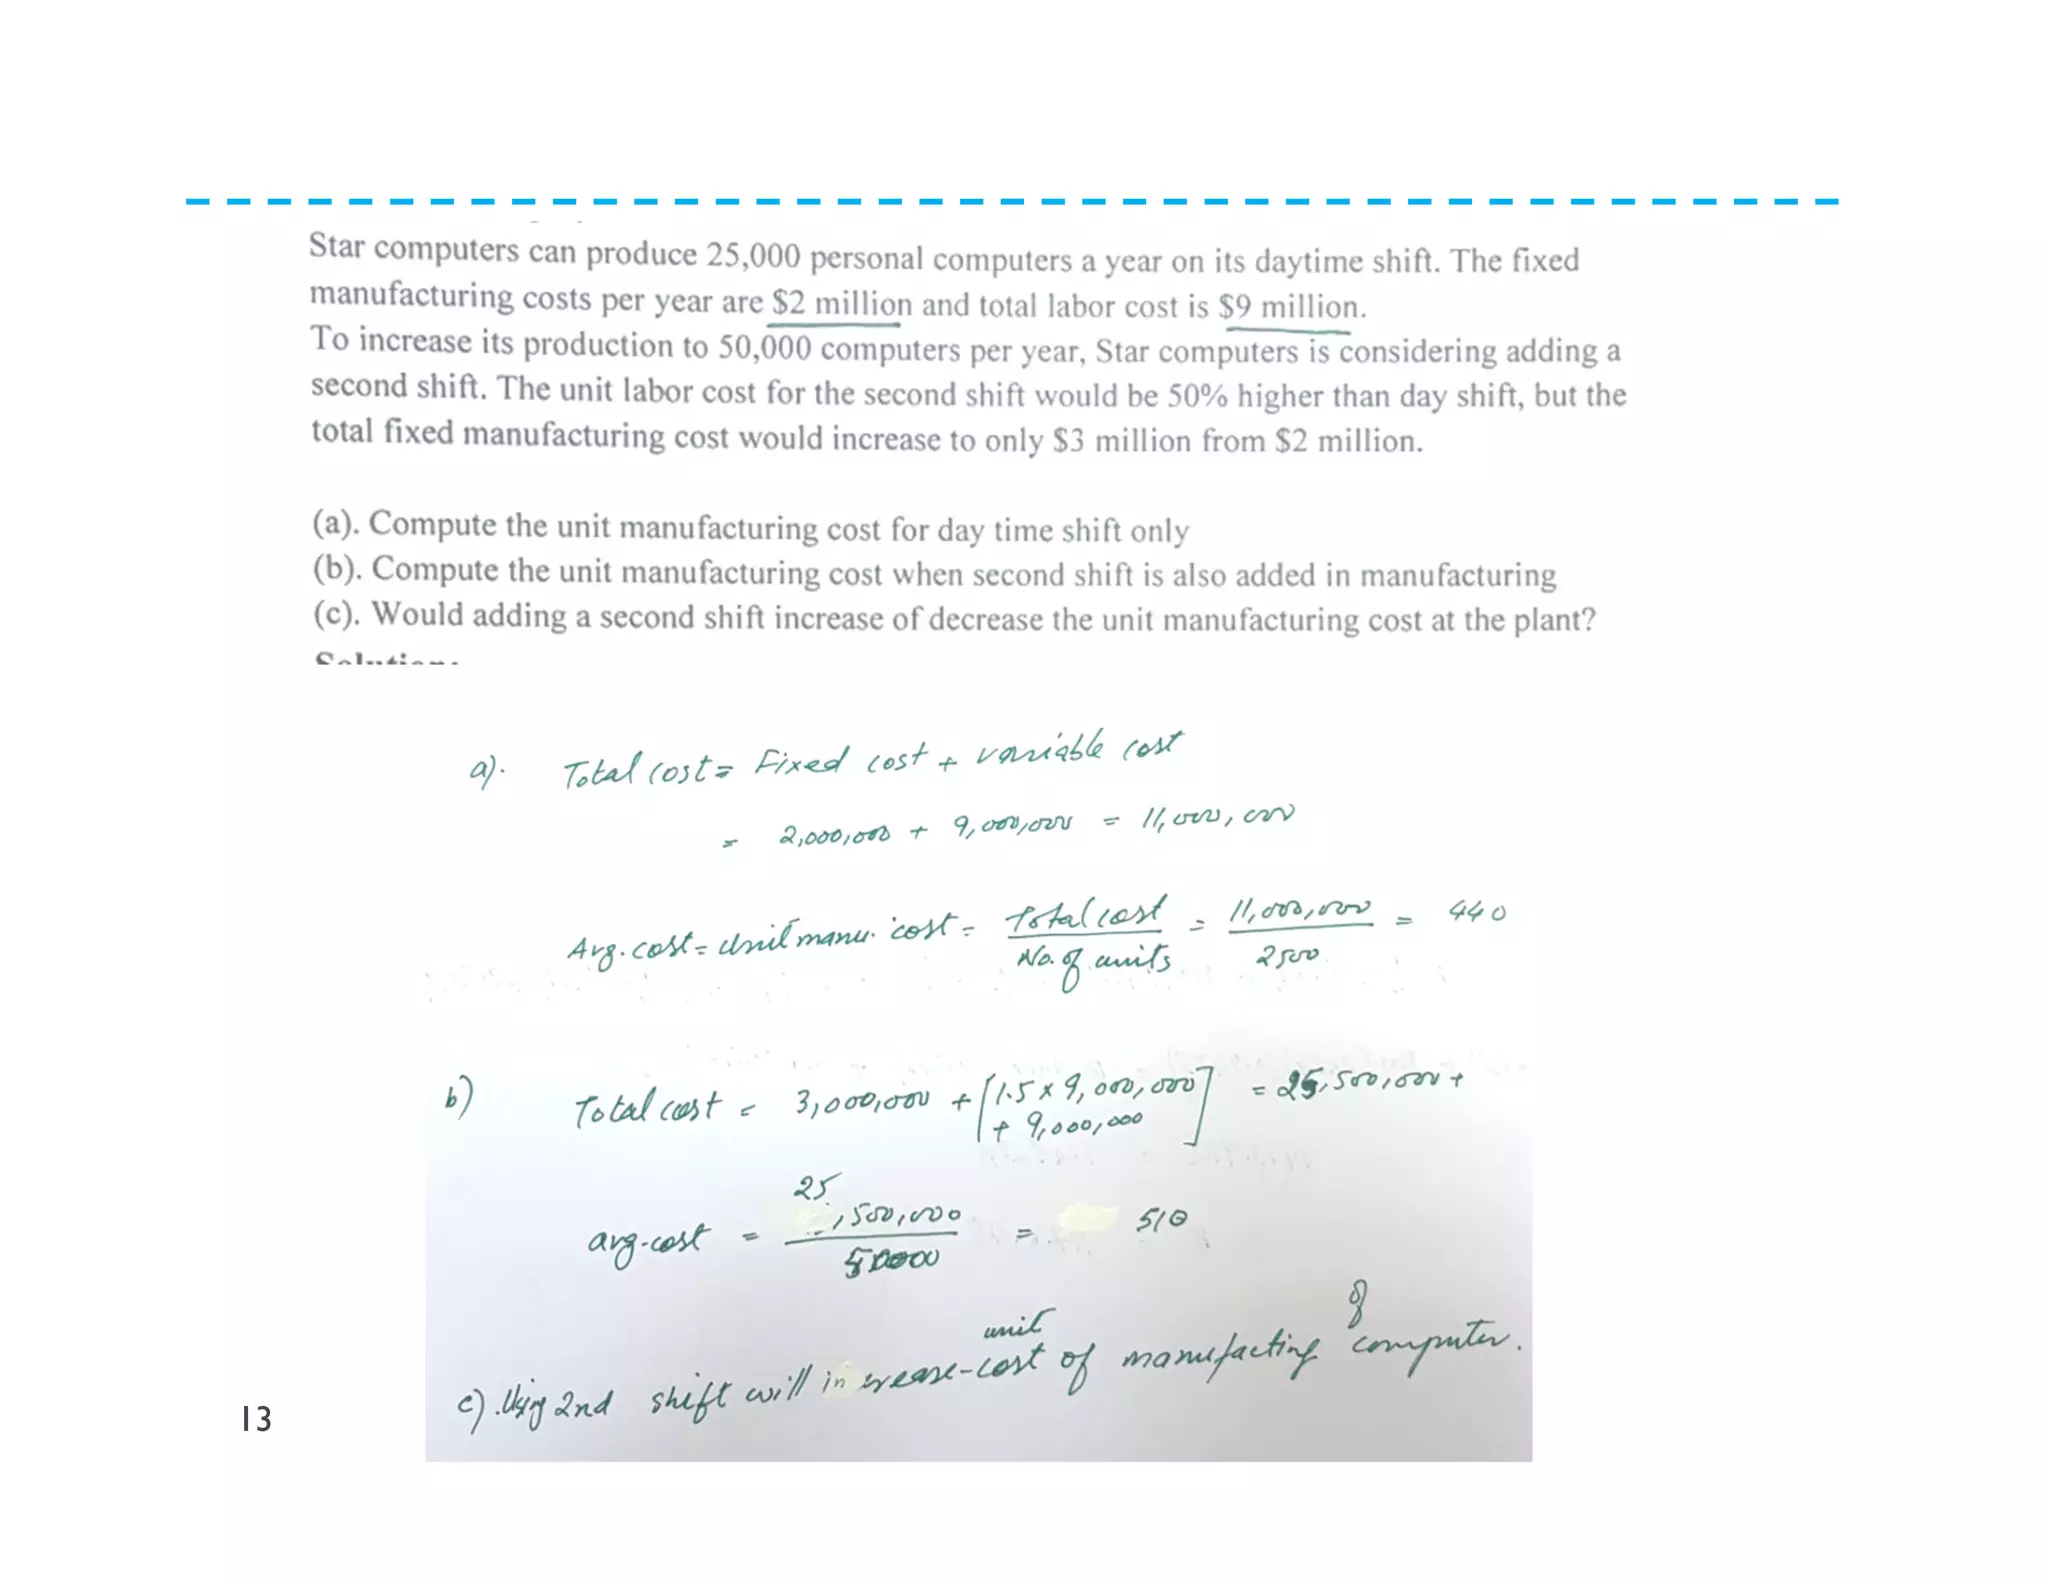 Star computers can produce 25,000 personal computers a year on its daytime shift. The fixed
manufacturing costs per year are $2 million and total labor cost is $9 million.
To increase its production to 50,000 computers per year, Star computers is considering adding a
second shift. The unit labor cost for the second shift would be 50% higher than day shift, but the
total fixed manufacturing cost would increase to only $3 million from $2 million.
(a). Compute the unit manufacturing cost for day time shift only
(b). Compute the unit manufacturing cost when second shift is also added in manufacturing
(c). Would adding a second shift increase of decrease the unit manufacturing cost at the plant?
a). Total cost = Fixed cost + variable cost
= 2,000,000 + 9,000,000 = 11,000,000
Avg. cost = Unit manu. cost = Total cost = 11,000,000 = 440
No. of units 2500
b) Total cost = 3,000,000 + [1.5 x 9,000,000 = 25,500,000 +
+ 9,000,000]
25
avg. cost = ,500,000 = 510
50000
unit of
c). Using 2nd shift will increase cost of manufacting computer.
13